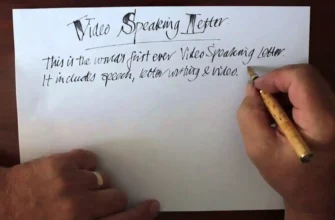 Video Speaking Letter
This is the worlds first ever Video Speaking Letter
It includes speech, letter writing & video.